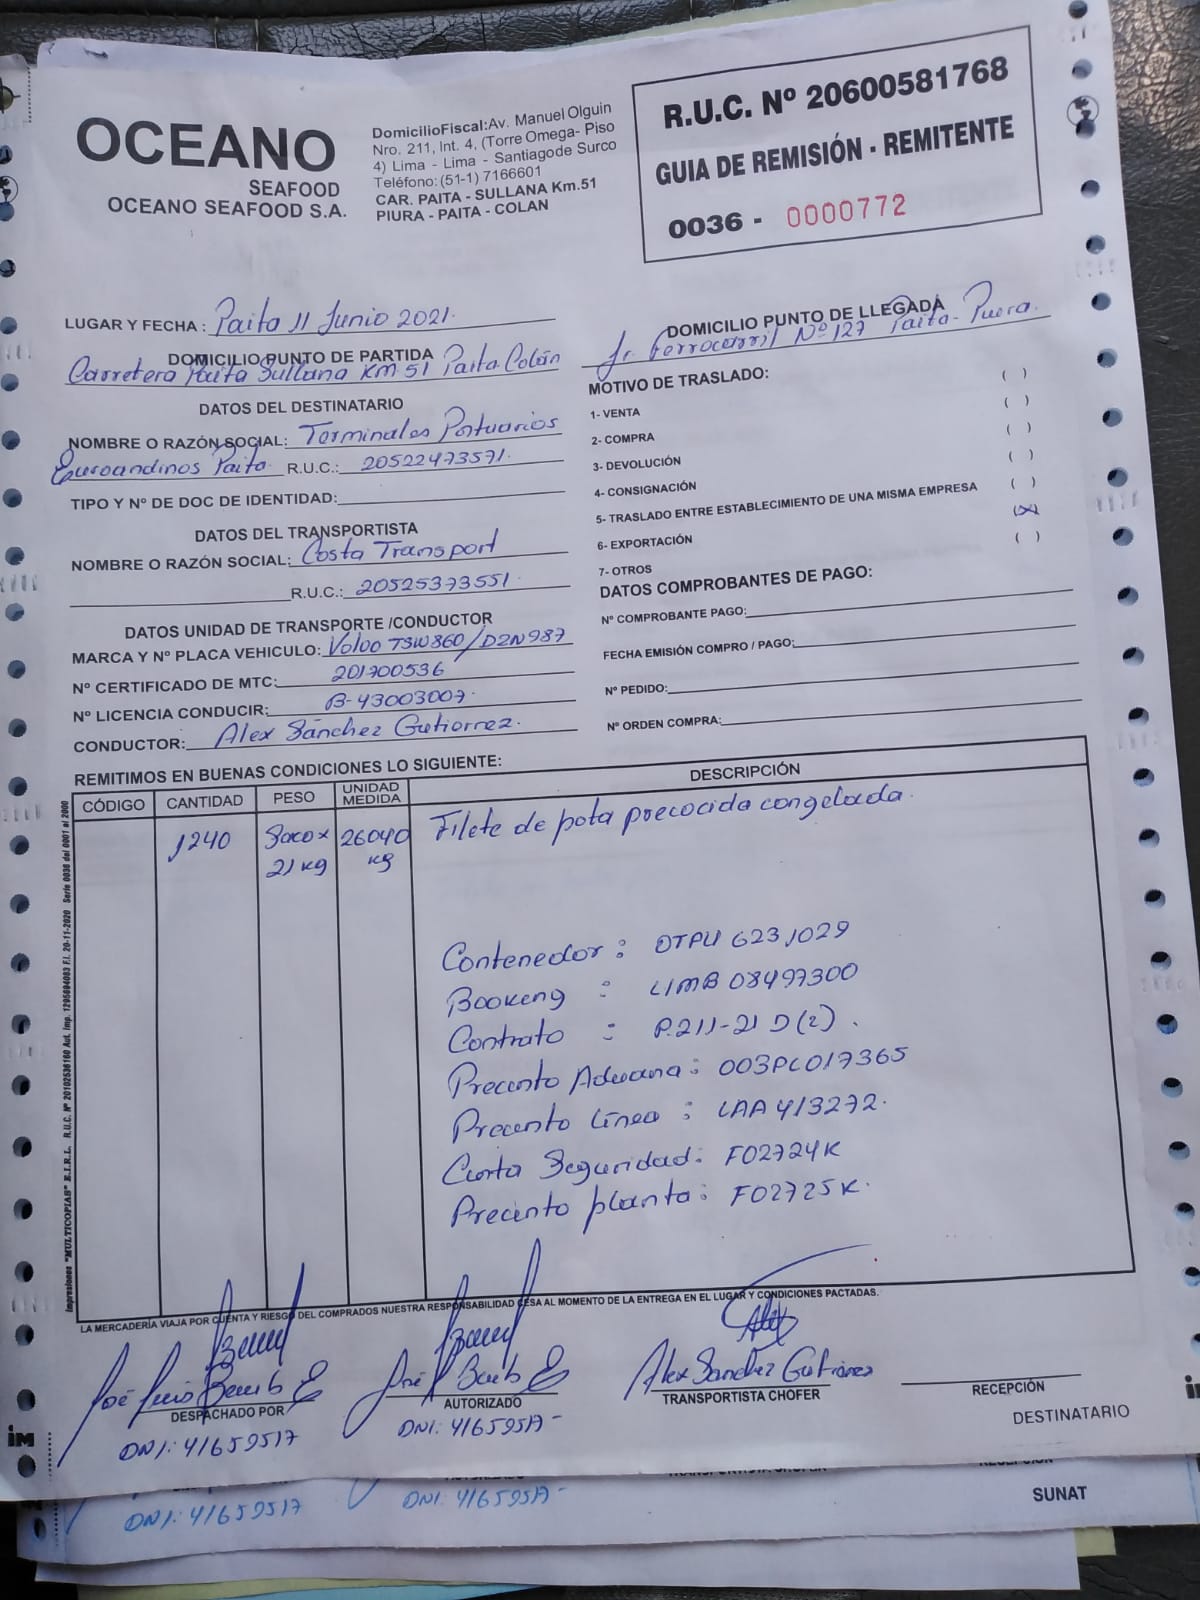 OCEANO
SEAFOOD
OCEANO SEAFOOD S.A.
DomicilioFiscal:Av. Manuel Olguin
Nro. 211, Int. 4, (Torre Omega- Piso
4) Lima - Lima - Santiagode Surco
Teléfono: (51-1) 7166601
CAR. PAITA - SULLANA Km.51
PIURA - PAITA - COLAN
R.U.C. Nº 20600581768
GUIA DE REMISIÓN - REMITENTE
0036 - 0000772
LUGAR Y FECHA : Paita 11 Junio 2021.
DOMICILIO PUNTO DE PARTIDA
Carretera Paita Sullana KM 51 Paita Colán
DOMICILIO PUNTO DE LLEGADA
Jr. Ferrocarril Nº 127 Paita- Piura.
DATOS DEL DESTINATARIO
NOMBRE O RAZÓN SOCIAL: Terminales Portuarios
Euroandinos Paita R.U.C.: 20522473571.
TIPO Y Nº DE DOC DE IDENTIDAD:
DATOS DEL TRANSPORTISTA
NOMBRE O RAZÓN SOCIAL: Costa Transport
R.U.C.: 20525373551.
DATOS UNIDAD DE TRANSPORTE /CONDUCTOR
MARCA Y Nº PLACA VEHICULO: Volvo T3W860/D2N987
Nº CERTIFICADO DE MTC: 201700536
Nº LICENCIA CONDUCIR: B-43003007.
CONDUCTOR: Alex Sánchez Gutierrez.
MOTIVO DE TRASLADO:
1- VENTA ( )
2- COMPRA ( )
3- DEVOLUCIÓN ( )
4- CONSIGNACIÓN ( )
5- TRASLADO ENTRE ESTABLECIMIENTO DE UNA MISMA EMPRESA ( )
6- EXPORTACIÓN (X)
7- OTROS ( )
DATOS COMPROBANTES DE PAGO:
Nº COMPROBANTE PAGO:
FECHA EMISIÓN COMPRO / PAGO:
Nº PEDIDO:
Nº ORDEN COMPRA:
REMITIMOS EN BUENAS CONDICIONES LO SIGUIENTE:
CÓDIGO CANTIDAD PESO UNIDAD MEDIDA DESCRIPCIÓN
1240 Saco x 26040 Filete de pota precocida congelada.
21 kg kg
Contenedor : OTPU 6231029
Booking : LIMB 08497300
Contrato : P.211-21 D(2).
Precinto Aduana: 003PL017365
Precinto Línea : LAA 413272.
Custo Seguridad: F02724K
Precinto planta: F02725K.
Impresiones "MULTICOPIAS" E.I.R.L. R.U.C. Nº 20102536160 Aut. Imp. 1295694083 F.I. 20-11-2020 Serie 0036 del 0001 al 2000
LA MERCADERÍA VIAJA POR CUENTA Y RIESGO DEL COMPRADOS NUESTRA RESPONSABILIDAD CESA AL MOMENTO DE LA ENTREGA EN EL LUGAR Y CONDICIONES PACTADAS.
José Luis
DESPACHADO POR
DNI: 41659517
José
AUTORIZADO
DNI: 41659517-
Alex Sanchez Gutierrez
TRANSPORTISTA CHOFER
RECEPCIÓN
DESTINATARIO
DNI: 41659517
DNI: 41659517-
SUNAT